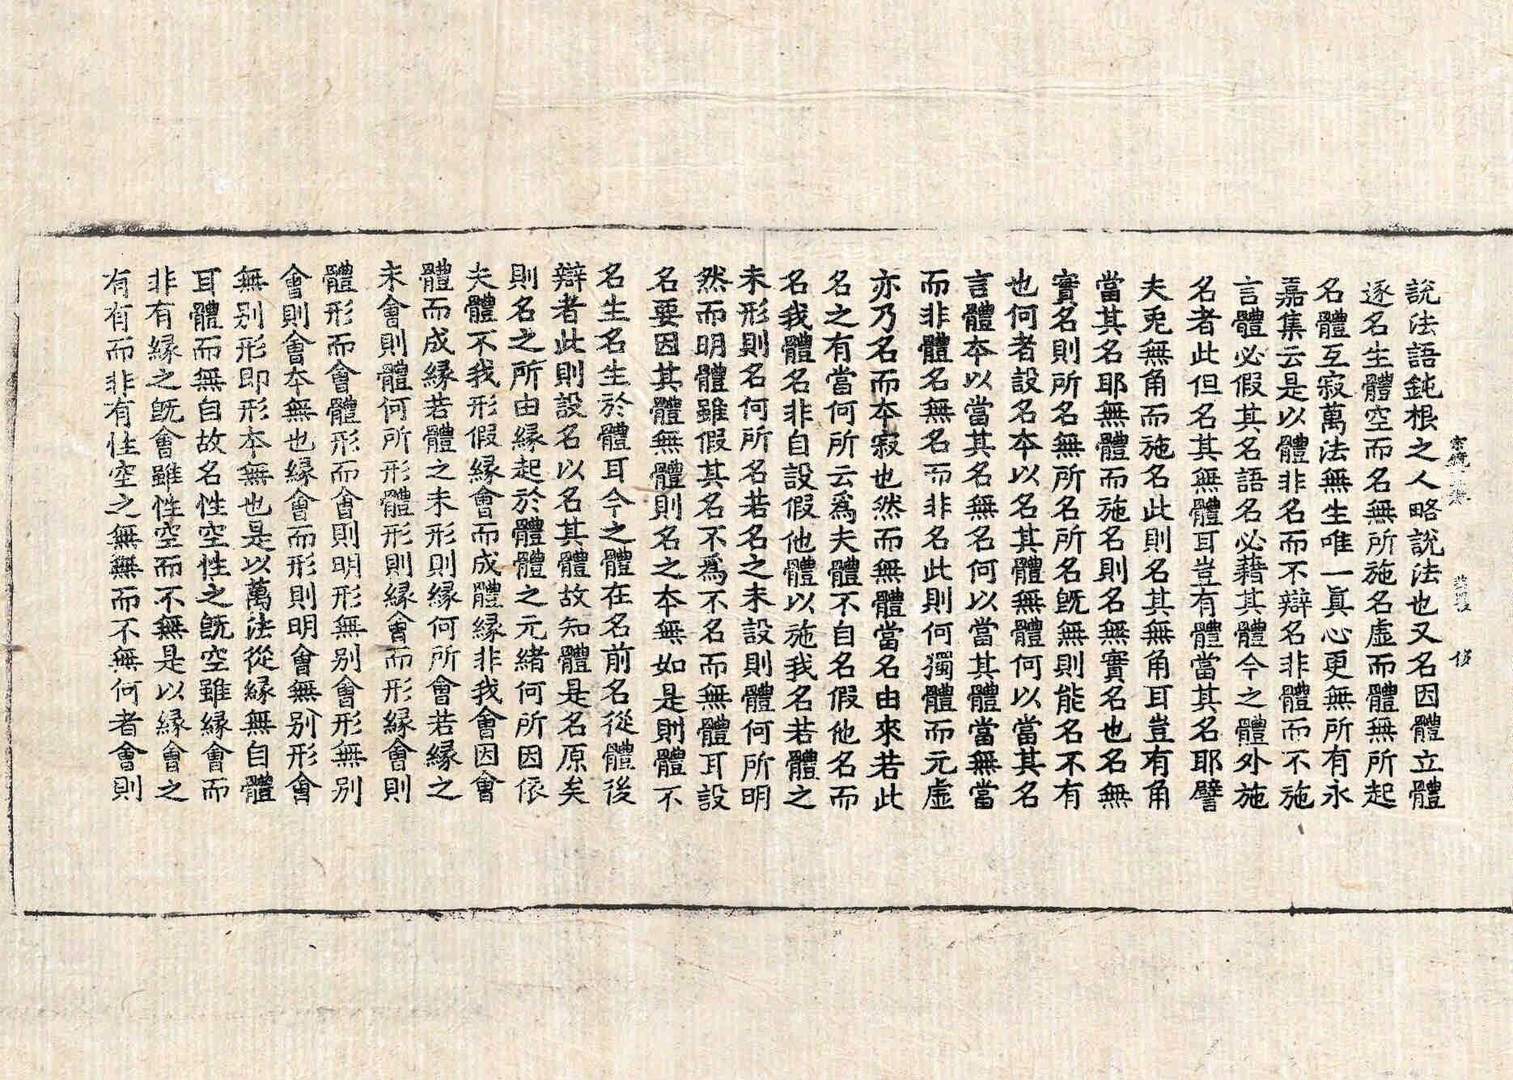 說法語鈍根之人略說法也又名因體立體
逐名生體空而名無所施名虛而體無所起
名體互寂萬法無生唯一真心更無所有永
嘉集云是以體非名而不辯名非體而不施
言體必假其名語名必藉其體今之體外施
名者此但名其無體耳豈有體當其名耶譬
夫兎無角而施名此則名其無角耳豈有角
當其名耶無體而施名則名無實名也名無
實名則所名無所名所名既無則能名不有
也何者設名本以名其體無體何以當其名
言體本以當其名無名何以當其體體當無當
而非體名無名而非名此則何獨體而元虛
亦乃名而本寂也然而無體當名由來若此
名之有當何所云爲夫體不自名假他名而
名我體名非自設假他體以施我名若體之
未形則名何所名若名之未設則體何所明
然而明體雖假其名不爲不名而無體耳設
名要因其體無體則名之本無如是則體不
名生名生於體耳今之體在名前名從體後
辯者此則設名以名其體故知體是名原矣
則名之所由緣起於體體之元緒何所因依
夫體不我形假緣會而成體緣非我會因會
體而成緣若體之未形則緣何所會若緣之
未會則體何所形體形則緣會而形緣會則
體形而會體形而會則明形無別會形無別
會則會本無也緣會而形則明會無別形會
無別形即形本無也是以萬法從緣無自體
耳體而無自故名性空性之既空雖緣會而
非有緣之既會雖性空而不無是以緣會之
有有而非有性空之無無而不無何者會則